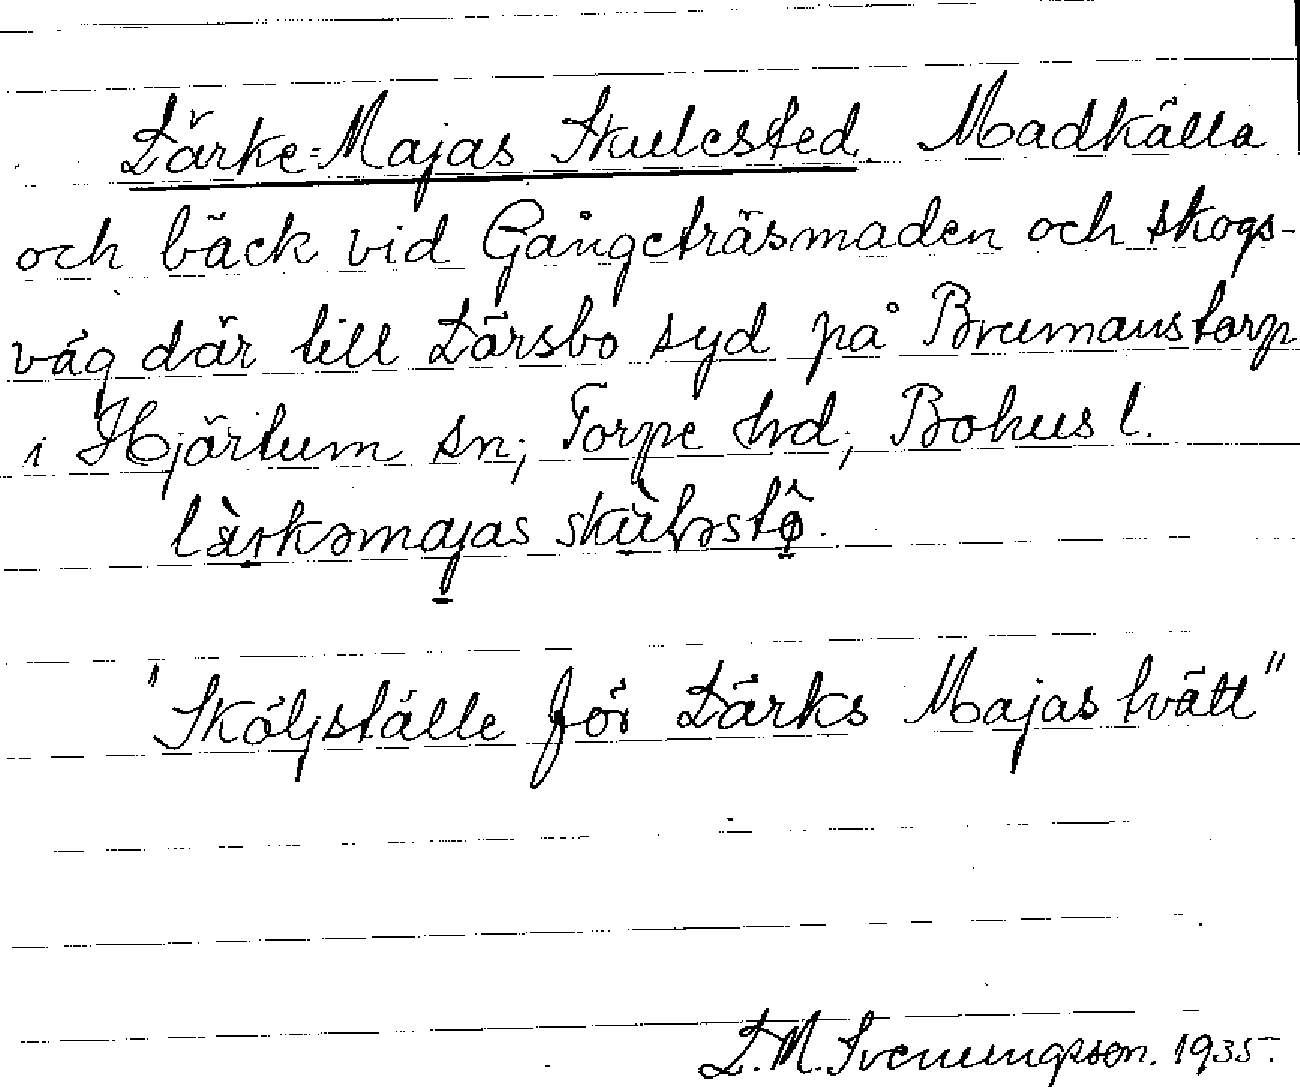 Lärke-Majas Skulested. Madkälla
och bäck vid Gångeträsmaden och skogs-
väg där till Lärsbo syd på Brumanstorp
i Hjärtum sn; Torpe hrd; Bohus l.
"Sköljställe för Lärks Majas tvätt"
L. M. Svenungsson. 1935.